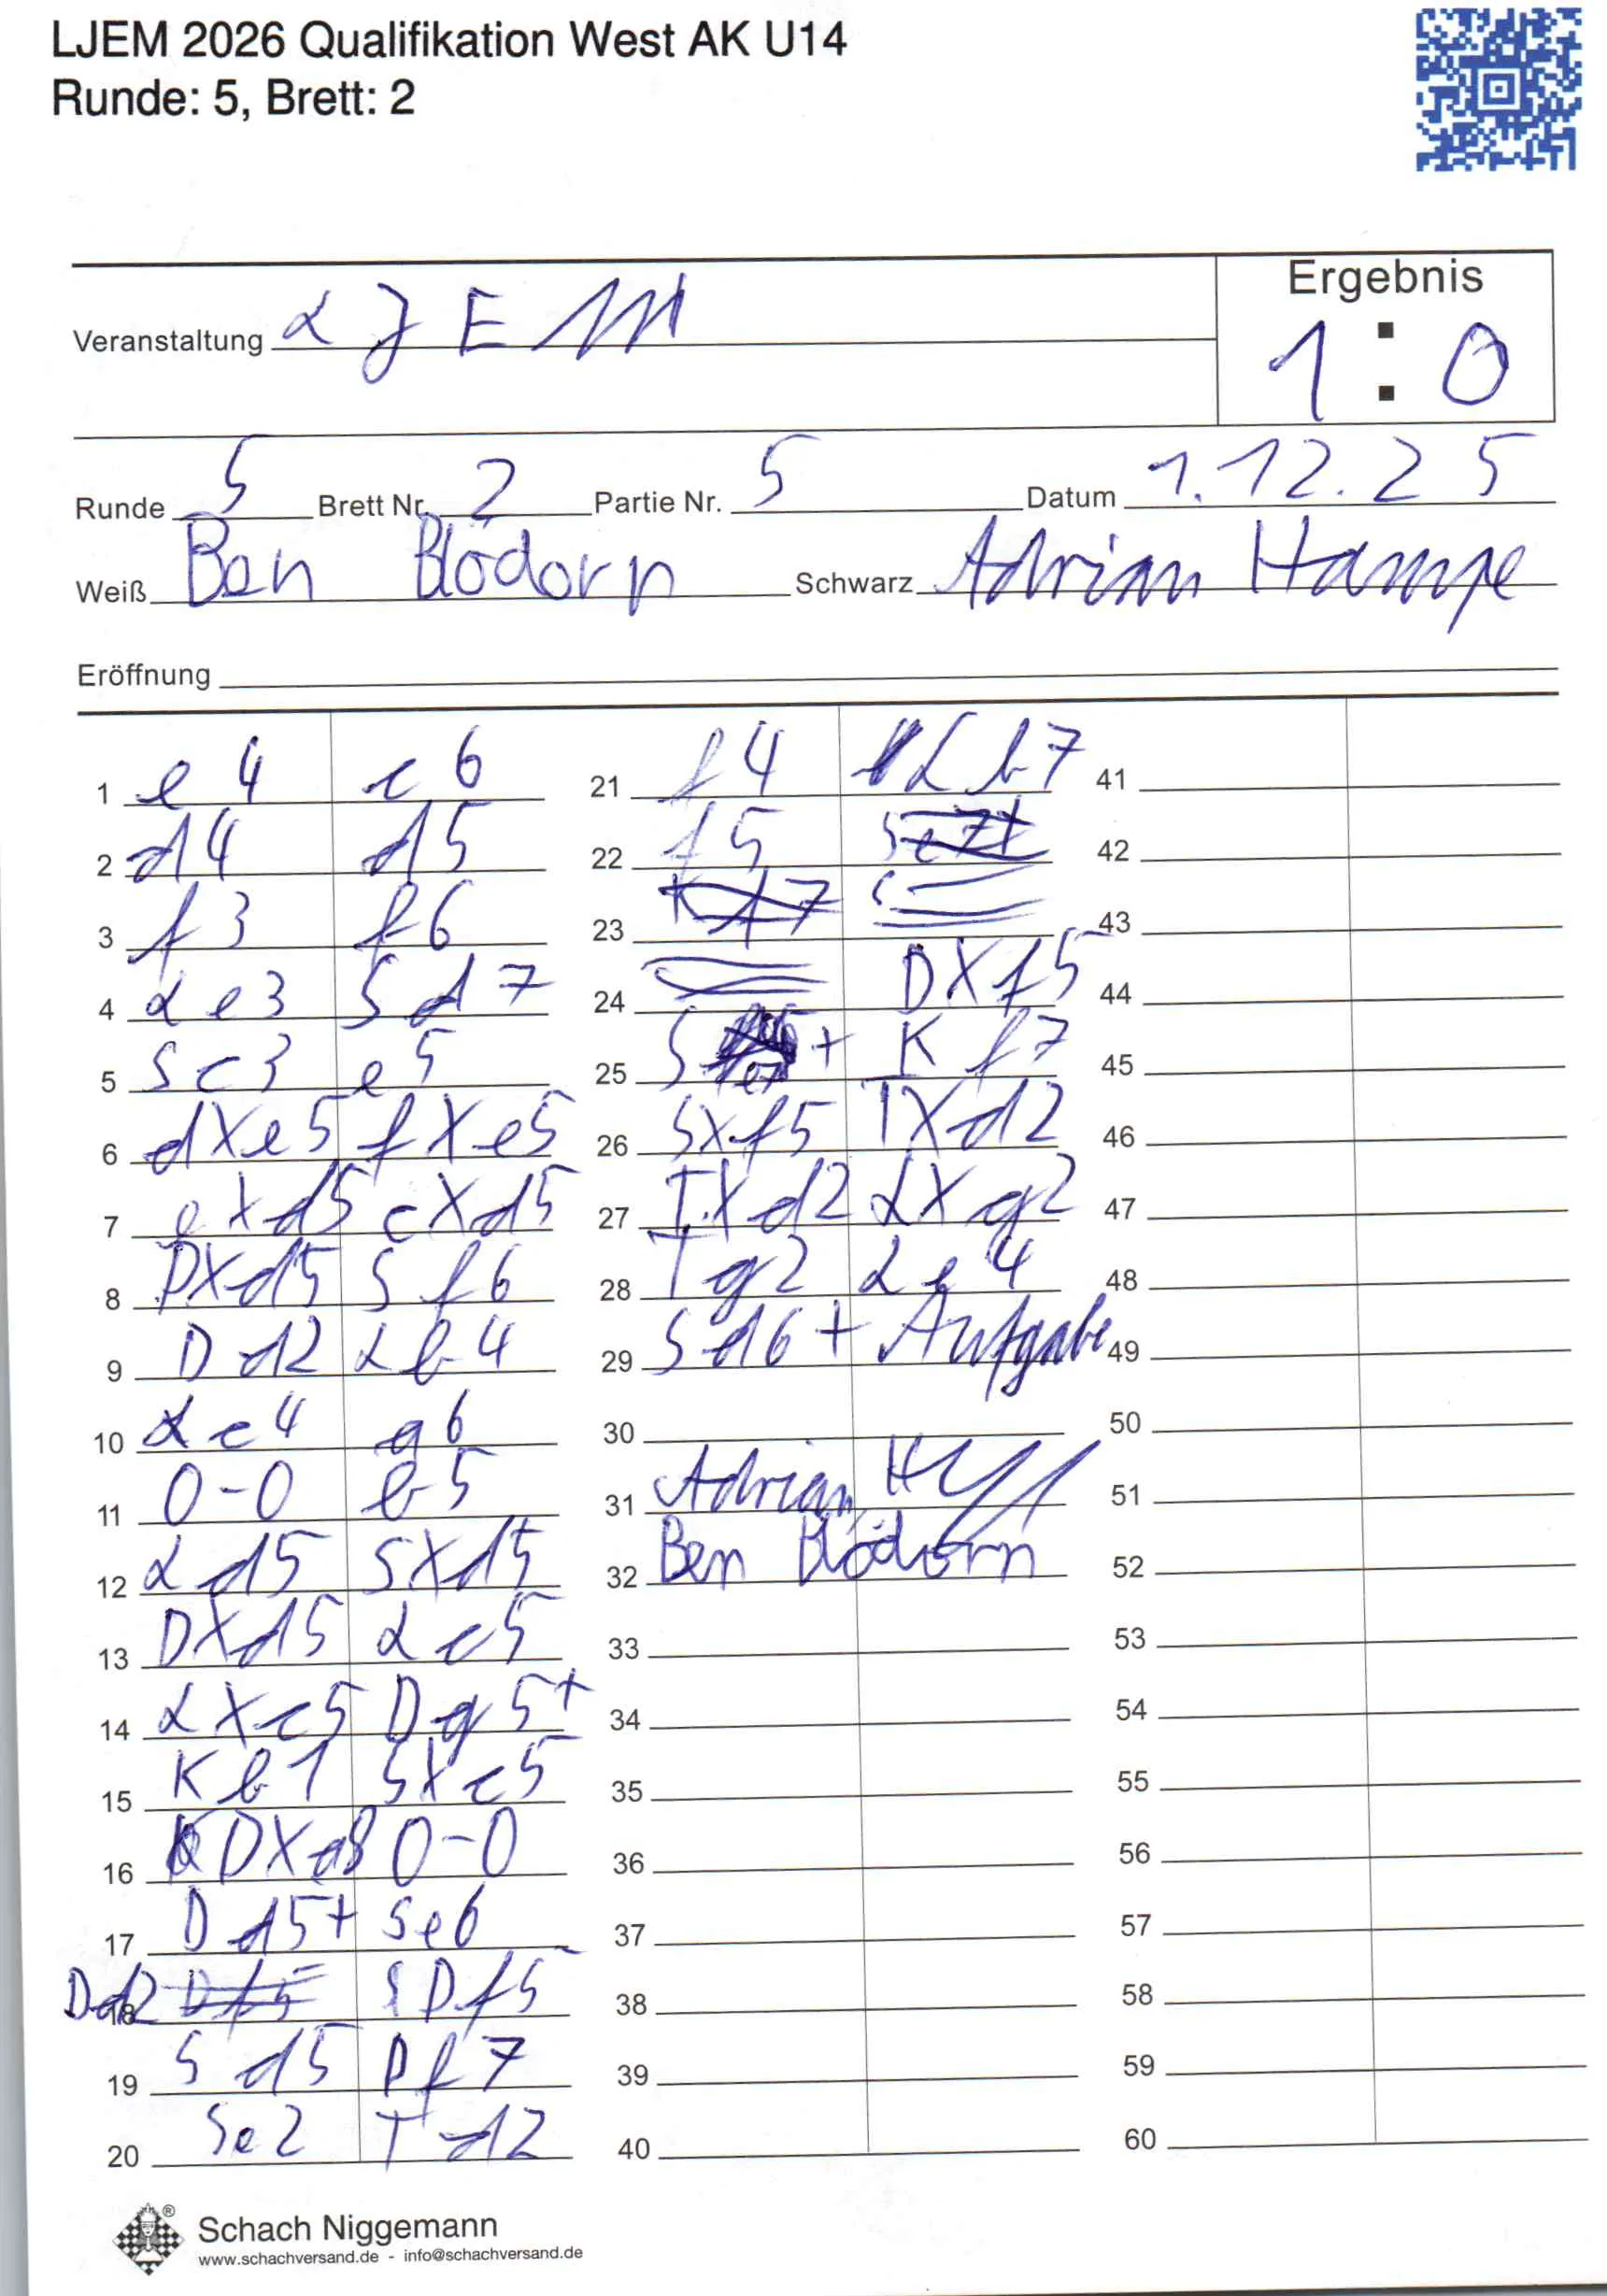 LJEM 2026 Qualifikation West AK U14
Runde: 5, Brett: 2
Ergebnis
Veranstaltung LJEM
1 : 0
Runde 5 Brett Nr. 2 Partie Nr. 5 Datum 1.12.25
Weiß Ben Blödorn Schwarz Adrian Hampe
Eröffnung
1 e4 c6
2 d4 d5
3 f3 f6
4 Le3 Sd7
5 Sc3 e5
6 dXe5 fXe5
7 eXd5 cXd5
8 DXd5 Sf6
9 Dd2 Lb4
10 Lc4 a6
11 0-0 b5
12 Ld5 SXd5
13 DXd5 Lc5
14 LXc5 Dg5+
15 Kb1 SXc5
16 DXa8 0-0
17 Dd5+ Se6
18 Dd2 Df5
19 Sd5 Df7
20 Se2 Td2
21 f4 Lb7
22 f5
23
24 DXf5
25 Se7+ Kf7
26 SXf5 TXd2
27 TXd2 LXg2
28 Tg2 Le4
29 Sd6+ Aufgabe
30
31 Adrian
32 Ben Blödorn
33
34
35
36
37
38
39
40
41
42
43
44
45
46
47
48
49
50
51
52
53
54
55
56
57
58
59
60
Schach Niggemann
www.schachversand.de - info@schachversand.de